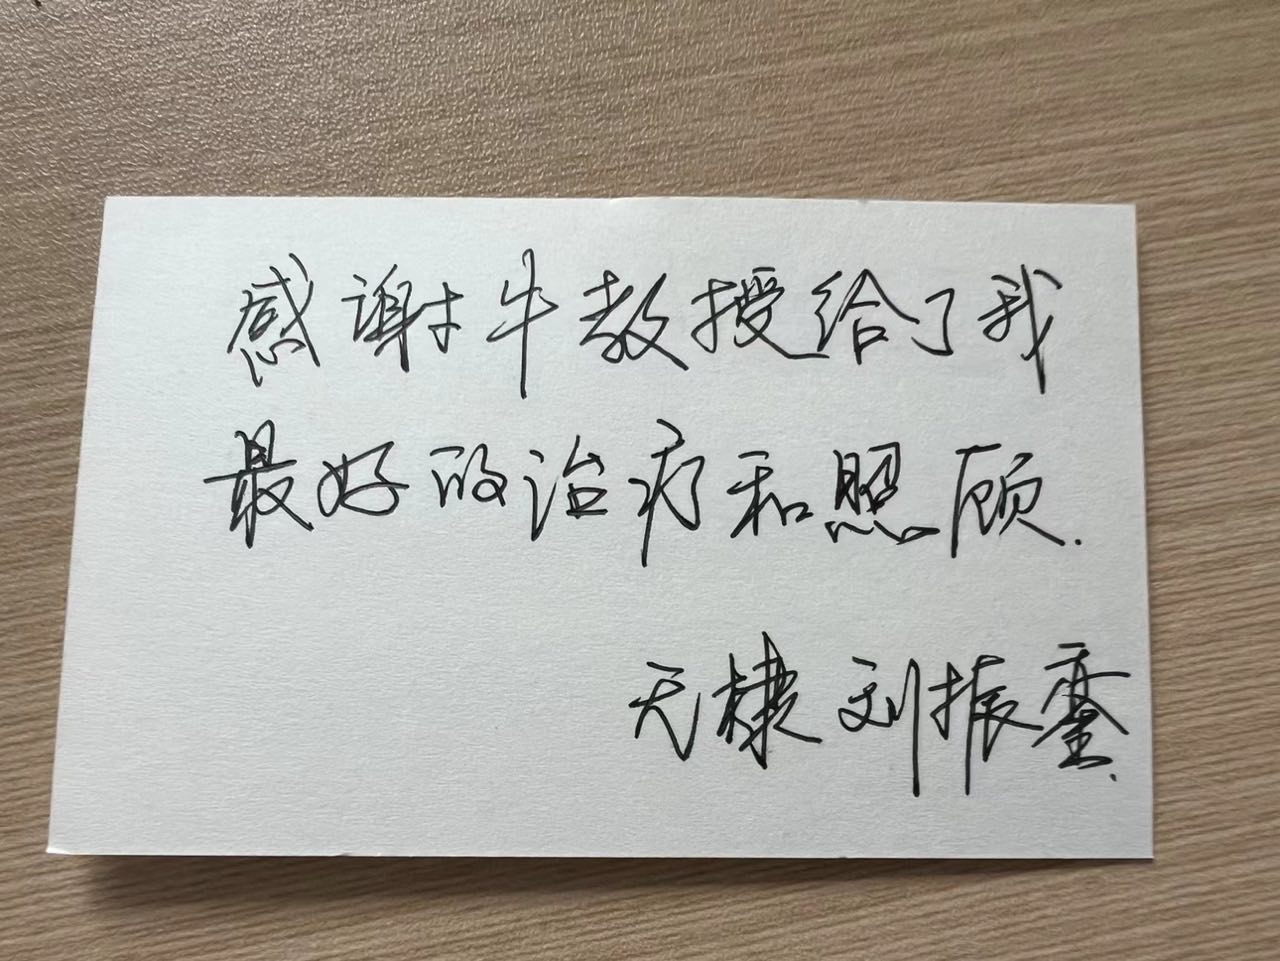 感谢牛教授给了我
最好的治疗和照顾.
无棣 刘振銮